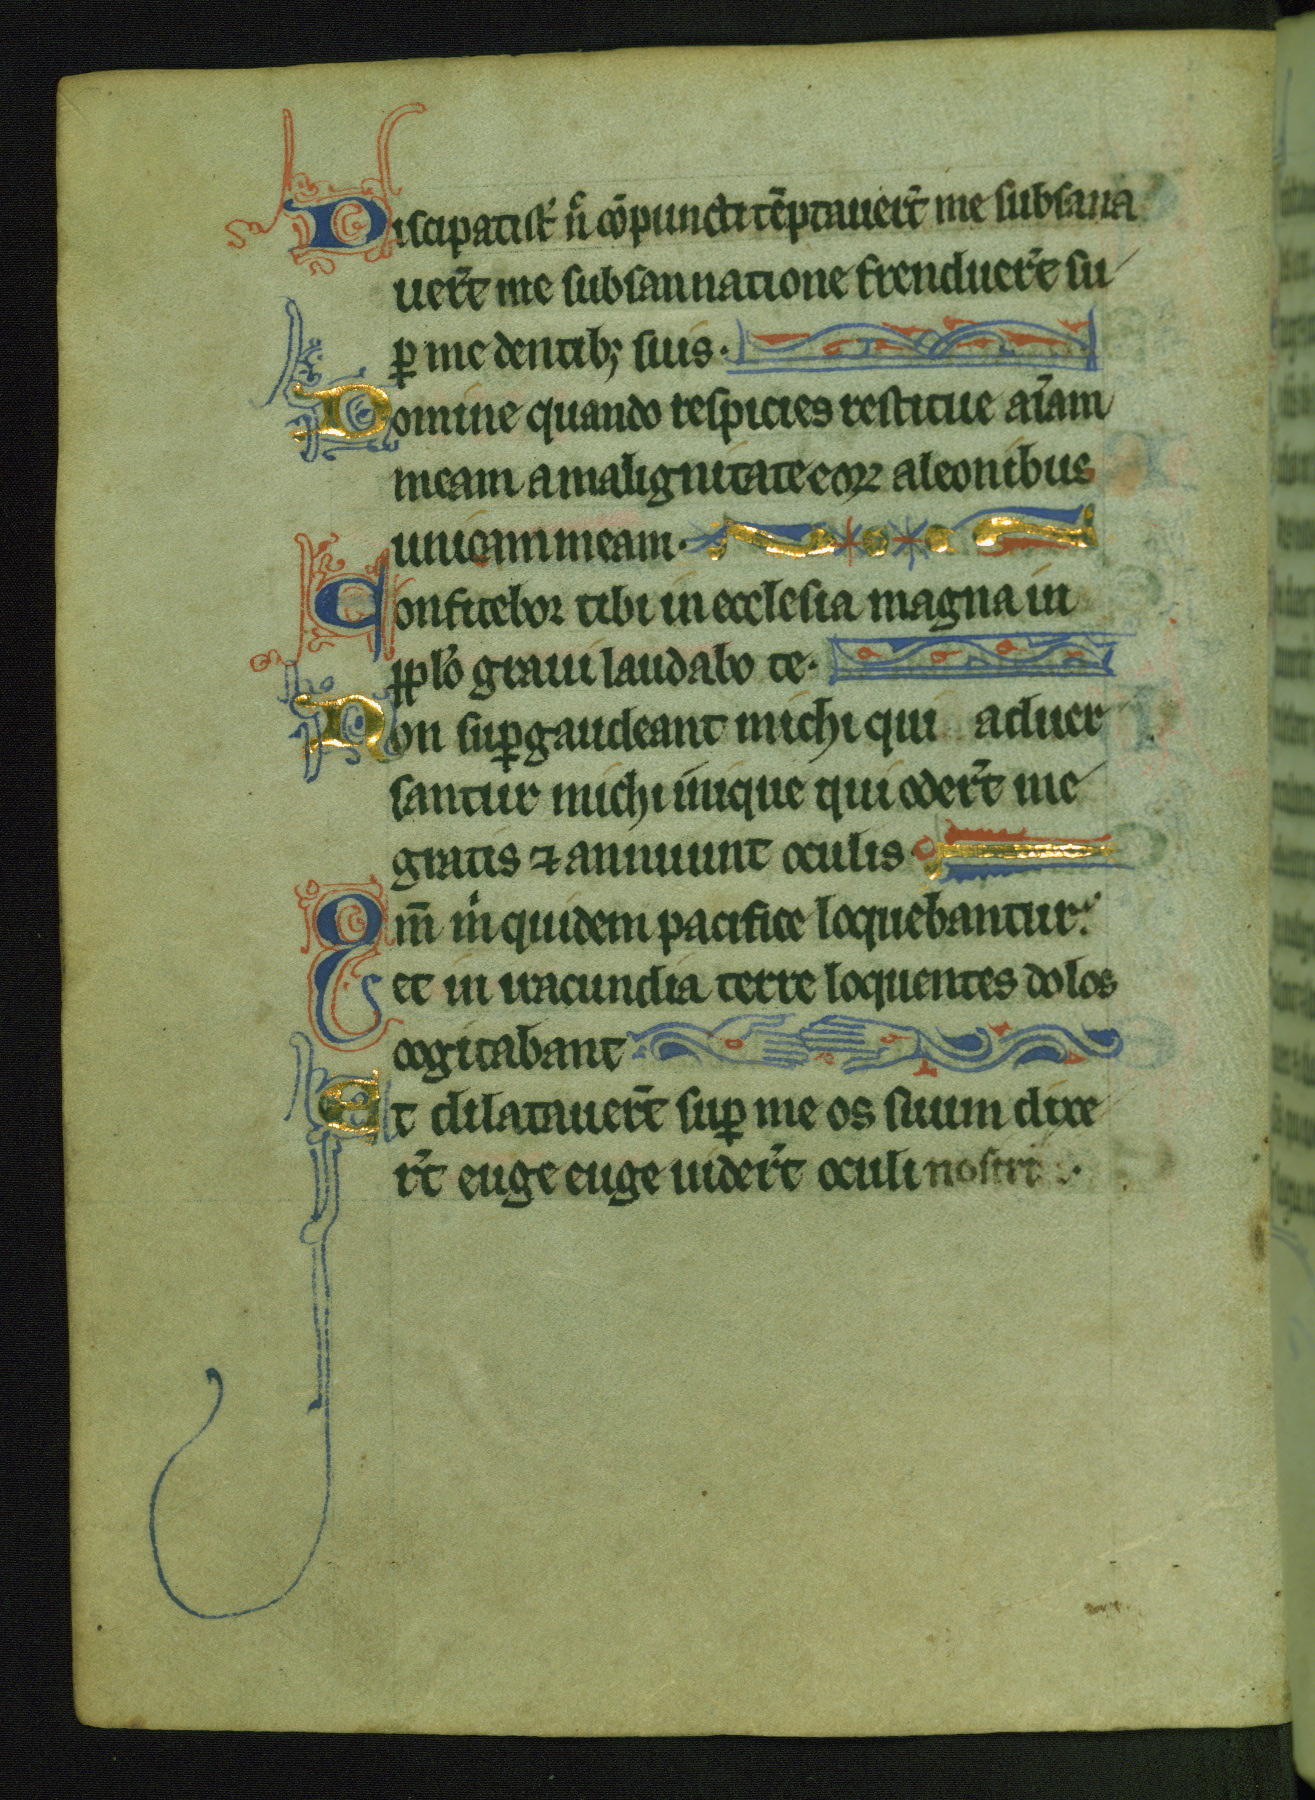 Discipati st̃ ñ cõpuncti tẽptauer̃t me subsana
uer̃t me subsannatione frenduer̃t su
ꝑ me dentibꝫ suis·
Domine quando respicies restitue aĩam
meam a malignitate eoꝝ a leonibus
unicam meam·
Confitebor tibi in ecclesia magna in
pplo graui laudabo te·
Non suꝑgaudeant michi qui aduer
santur michi inique qui oder̃t me
gratis ⁊ annuunt oculis
Qm̃ m̊ quidem pacifice loquebantur:
Et in iracundia terre loquentes dolos
cogitabant
Et dilatauer̃t suꝑ me os suum dixe
r̃t euge euge uider̃t oculi nostri·